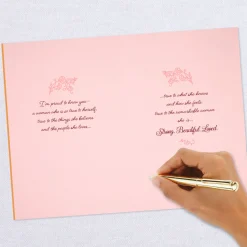 I'm proud to know you—
a woman who is so true to herself,
true to the things she believes
and the people she loves...
...true to what she knows
and how she feels
true to the remarkable woman
she is...
Strong, Beautiful, Loved.